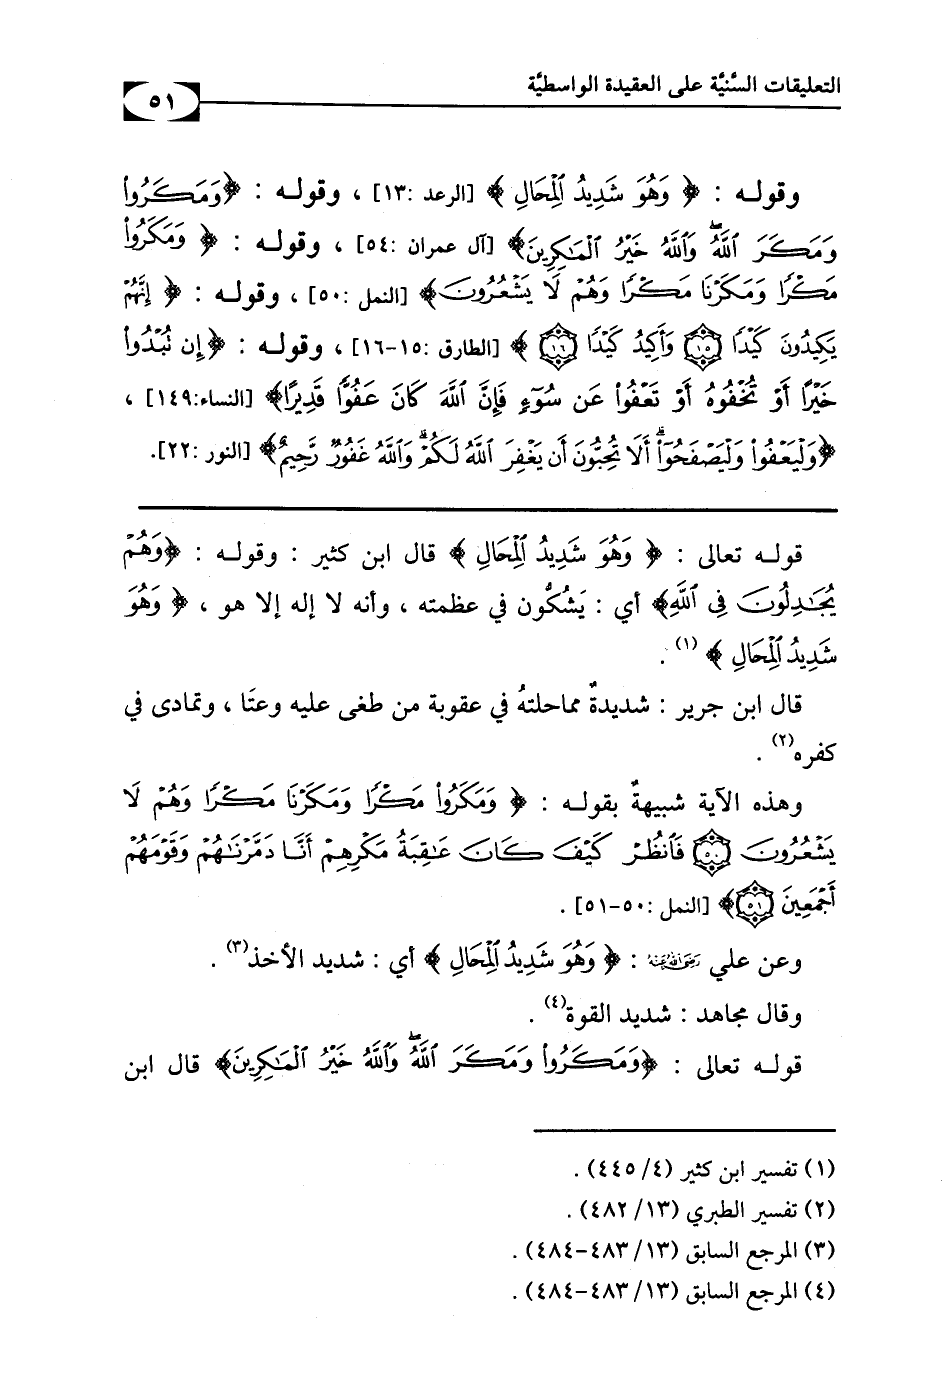 التعليقات السُّنيَّة على العقيدة الواسطيَّة
٥١
وقوله : ﴿ وَهُوَ شَدِيدُ ٱلْمِحَالِ ﴾ [الرعد :١٣] ، وقوله : ﴿وَمَكَرُوا۟
وَمَكَرَ ٱللَّهُۖ وَٱللَّهُ خَيْرُ ٱلْمَـٰكِرِينَ﴾ [آل عمران :٥٤] ، وقوله : ﴿ وَمَكَرُوا۟
مَكْرًا وَمَكَرْنَا مَكْرًا وَهُمْ لَا يَشْعُرُونَ﴾ [النمل :٥٠] ، وقوله : ﴿ إِنَّهُمْ
يَكِيدُونَ كَيْدًا ١٥ وَأَكِيدُ كَيْدًا ١٦ ﴾ [الطارق :١٥-١٦] ، وقوله : ﴿إِن تُبْدُوا۟
خَيْرًا أَوْ تُخْفُوهُ أَوْ تَعْفُوا۟ عَن سُوٓءٍ فَإِنَّ ٱللَّهَ كَانَ عَفُوًّا قَدِيرًا﴾ [النساء:١٤٩] ،
﴿وَلْيَعْفُوا۟ وَلْيَصْفَحُوٓا۟ۗ أَلَا تُحِبُّونَ أَن يَغْفِرَ ٱللَّهُ لَكُمْۗ وَٱللَّهُ غَفُورٌ رَّحِيمٌ﴾ [النور :٢٢].
قوله تعالى : ﴿ وَهُوَ شَدِيدُ ٱلْمِحَالِ ﴾ قال ابن كثير : وقوله : ﴿وَهُمْ
يُجَـٰدِلُونَ فِى ٱللَّهِ﴾ أي : يَشُكُّون في عظمته ، وأنه لا إله إلا هو ، ﴿ وَهُوَ
شَدِيدُ ٱلْمِحَالِ ﴾ (١) .
قال ابن جرير : شديدةٌ مماحلتهُ في عقوبة من طغى عليه وعتَا ، وتمادى في
كفره(٢) .
وهذه الآية شبيهةٌ بقوله : ﴿ وَمَكَرُوا۟ مَكْرًا وَمَكَرْنَا مَكْرًا وَهُمْ لَا
يَشْعُرُونَ ٥٠ فَٱنظُرْ كَيْفَ كَانَ عَـٰقِبَةُ مَكْرِهِمْ أَنَّا دَمَّرْنَـٰهُمْ وَقَوْمَهُمْ
أَجْمَعِينَ ٥١﴾ [النمل :٥٠-٥١] .
وعن علي رَضِيَ اللَّهُ عَنْهُ : ﴿ وَهُوَ شَدِيدُ ٱلْمِحَالِ ﴾ أي : شديد الأخذ(٣) .
وقال مجاهد : شديد القوة(٤) .
قوله تعالى : ﴿وَمَكَرُوا۟ وَمَكَرَ ٱللَّهُۖ وَٱللَّهُ خَيْرُ ٱلْمَـٰكِرِينَ﴾ قال ابن
(١) تفسير ابن كثير (٤/ ٤٤٥) .
(٢) تفسير الطبري (١٣/ ٤٨٢) .
(٣) المرجع السابق (١٣/ ٤٨٣-٤٨٤) .
(٤) المرجع السابق (١٣/ ٤٨٣-٤٨٤) .